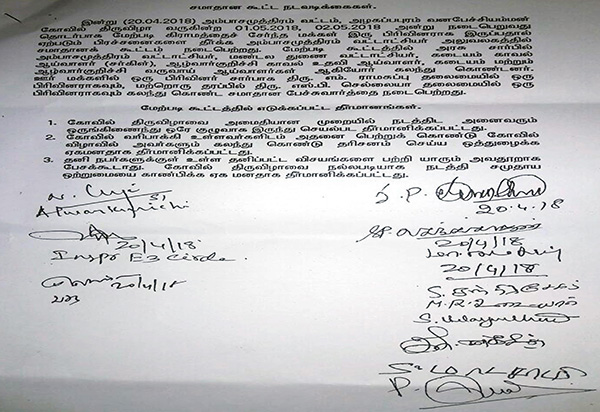 சமாதான கூட்ட நடவடிக்கைகள்.
இன்று (20.04.2018) அம்பாசமுத்திரம் வட்டம், அழகப்பபுரம் வனபேச்சியம்மன்
கோவில் திருவிழா வருகின்ற 01.05.2018, 02.05.2018 அன்று நடைபெறுவது
தொடர்பாக மேற்படி கிராமத்தைச் சேர்ந்த மக்கள் இரு பிரிவினராக இருப்பதால்
ஏற்படும் பிரச்சனைகளை தீர்க்க அம்பாசமுத்திரம் வட்டாட்சியர் அலுவலகத்தில்
சமாதானக் கூட்டம் நடைபெற்றது. மேற்படி கூட்டத்தில் அரசு சார்பில்
அம்பாசமுத்திரம் வட்டாட்சியர், மண்டல துணை வட்டாட்சியர், கடையம் காவல்
ஆய்வாளர் (சர்கிள்), ஆழ்வார்குறிச்சி காவல் உதவி ஆய்வாளர், கடையம் மற்றும்
ஆழ்வார்குறிச்சி வருவாய் ஆய்வாளர்கள் ஆகியோர் கலந்து கொண்டனர்.
ஊர் மக்களில் ஒரு பிரிவினர் சார்பாக திரு. எம். ராமசுப்பு தலைமையில் ஒரு
பிரிவினராகவும், மற்றொரு தரப்பில் திரு. எஸ்.பி. செல்லையா தலைமையில் ஒரு
பிரிவினராகவும் கலந்து கொண்ட சமாதான பேச்சுவார்த்தை நடைபெற்றது.
மேற்படி கூட்டத்தில் எடுக்கப்பட்ட தீர்மானங்கள்.
1. கோவில் திருவிழாவை அமைதியான முறையில் நடத்திட அனைவரும்
ஒருங்கிணைந்து ஒரே குழுவாக இருந்து செயல்பட தீர்மானிக்கப்பட்டது.
2. கோவில் வரிபாக்கி உள்ளவர்களிடம் அதனை பெற்றுக் கொண்டு கோவில்
விழாவில் அவர்களும் கலந்து கொண்டு தரிசனம் செய்ய ஒத்துழைக்க
ஏகமனதாக தீர்மானிக்கப்பட்டது.
3. தனி நபர்களுக்குள் உள்ள தனிப்பட்ட விசயங்களை பற்றி யாரும் அவதூறாக
பேசக்கூடாது. கோவில் திருவிழாவை நல்லபடியாக நடத்தி சமுதாய
ஒற்றுமையை காண்பிக்க ஏக மனதாக தீர்மானிக்கப்பட்டது.
S. P.
20.4.18
20/4/18
Inspr E3 Circle
20/4/18
20/4/18
20/4/18
M.R.
S. Udayakumar
P.